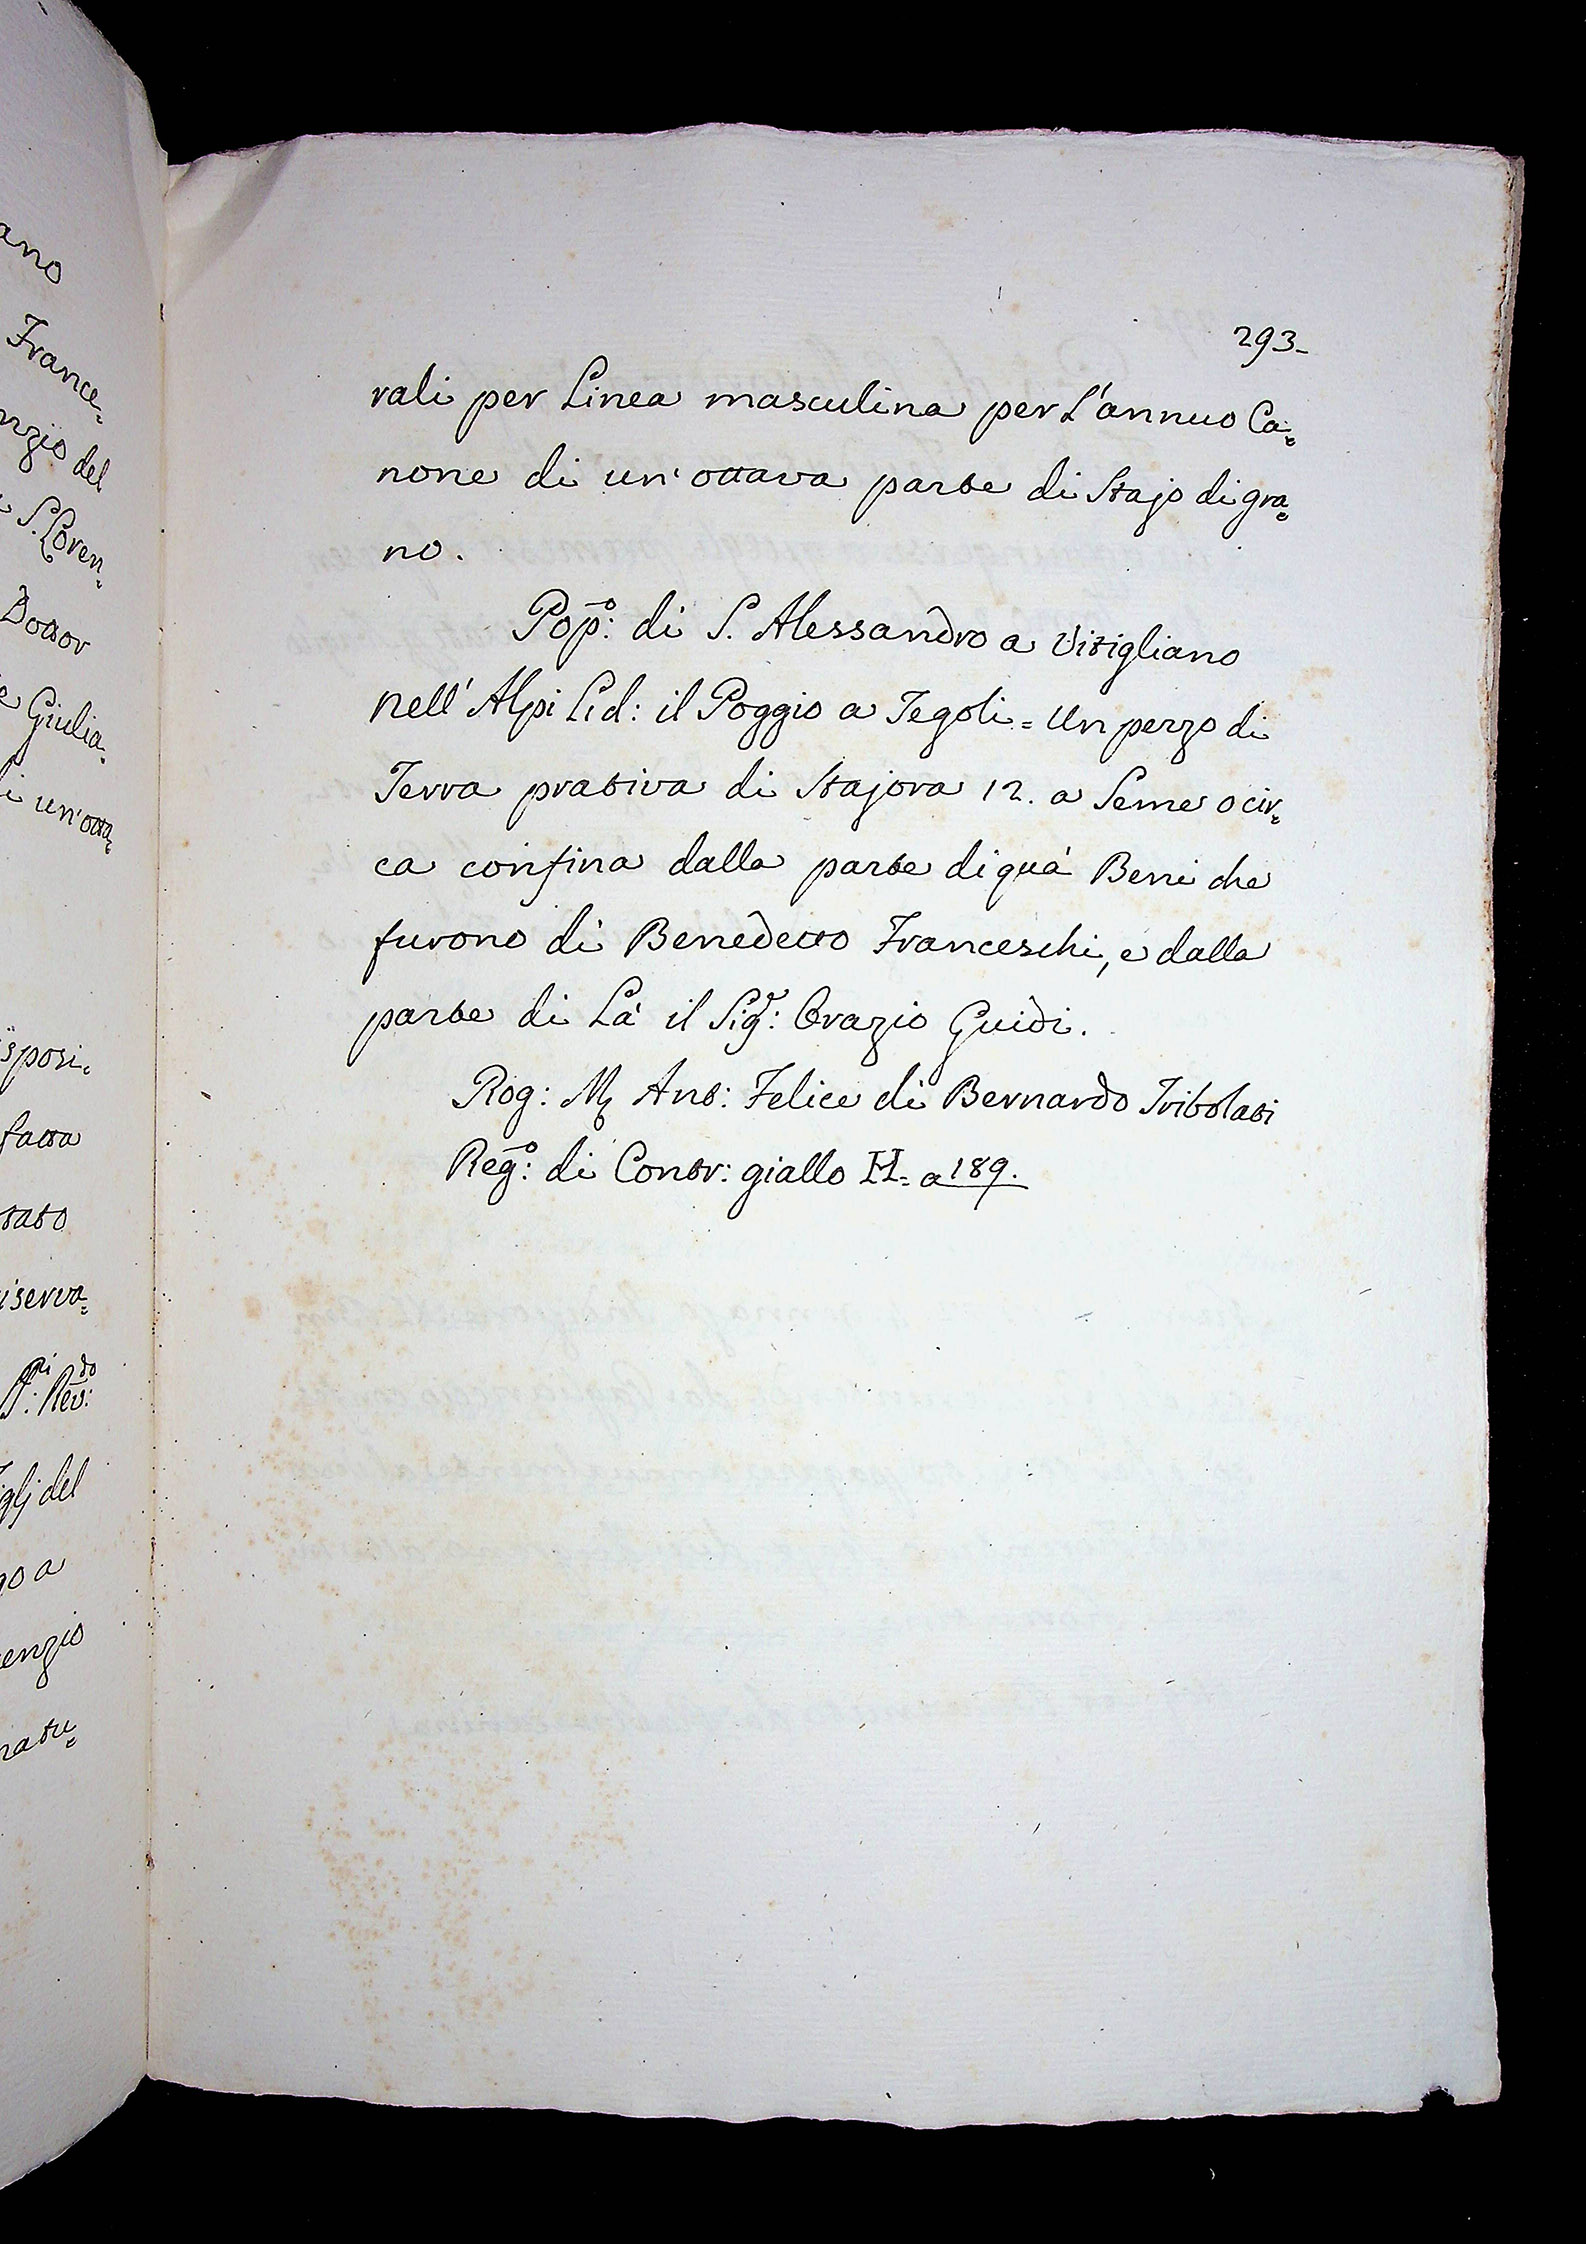 ano
France=
nzio del
S. Loren=
Dottor
e Giulia=
di un'otta=
sposi=
fatta
tato
iserva=
Rev:do
figlj del
go a
enzio
natu=
293-
rali per Linea masculina per L'annuo Ca=
none di un'ottava parte di Stajo di gra=
no.
Pop:o di S. Alessandro a Vitigliano
nell'Alpi L.d: il Poggio a Tegoli = Un pezzo di
Terra prativa di Stajora 12. a Seme o cir=
ca confina dalla parte di quà Beni che
furono di Benedetto Franceschi, e dalla
parte di Là il Sig:r Orazio Guidi.
Rog: M. Ant: Felice di Bernardo Tribolati
Reg:o di Contr: giallo H= a 189.